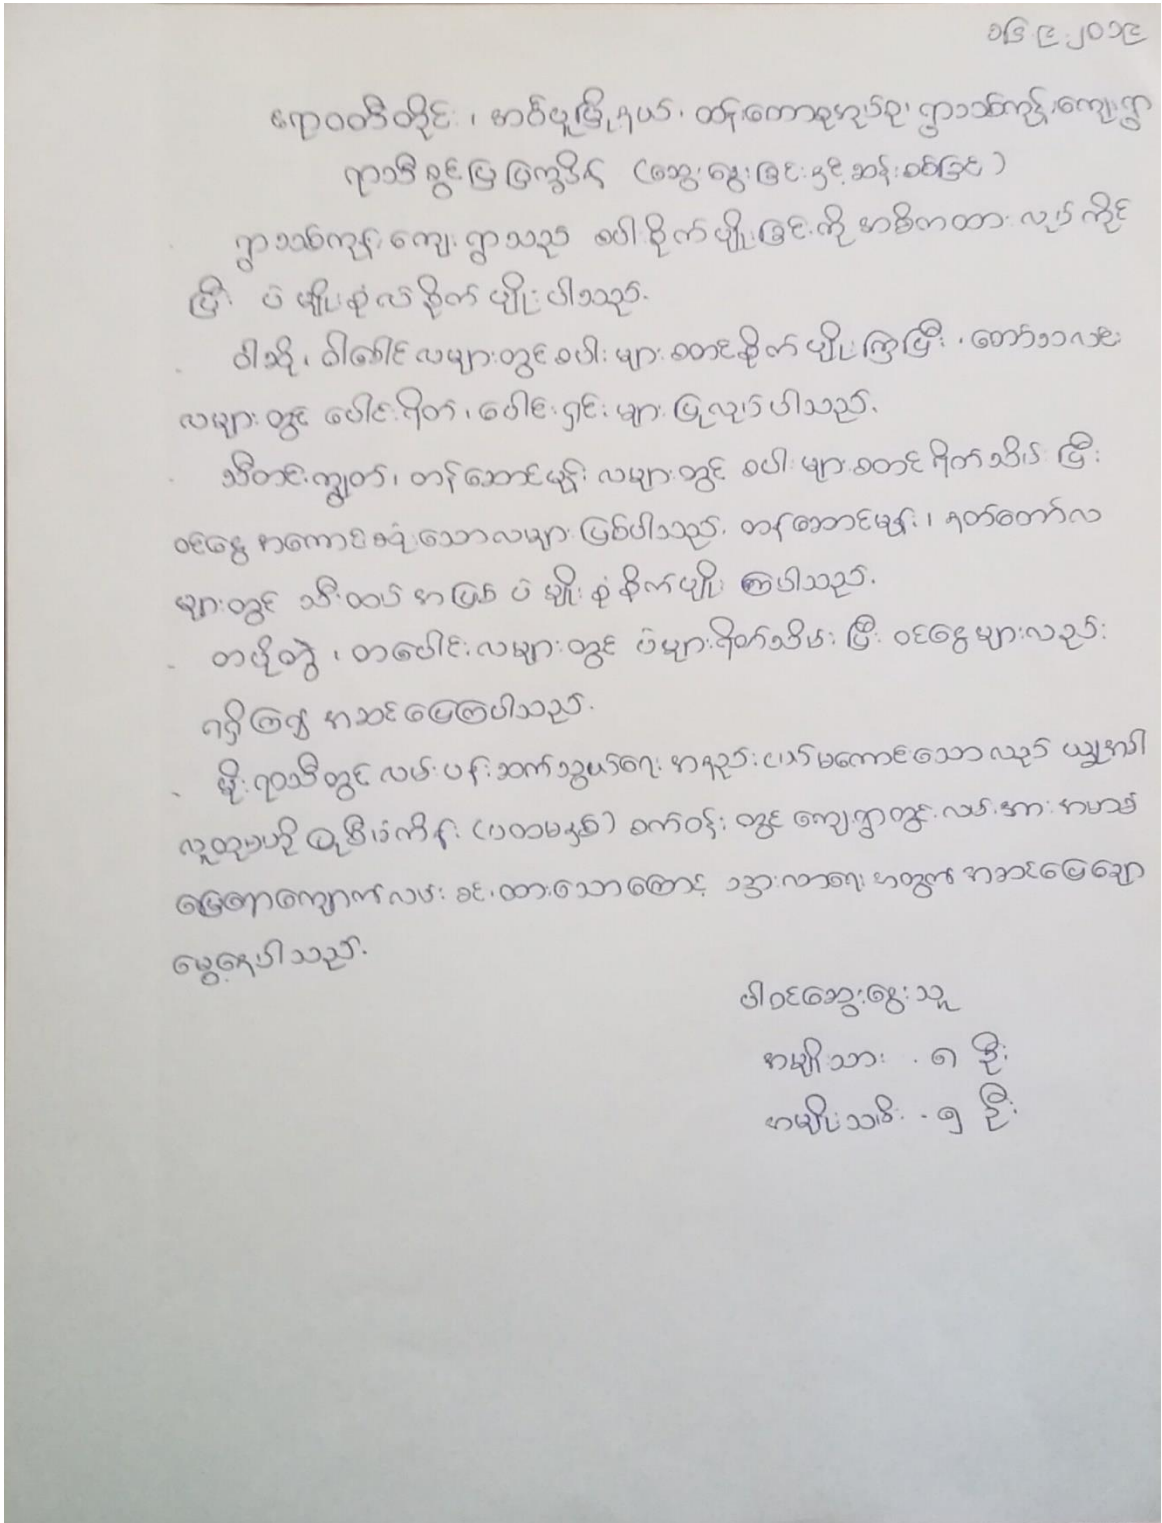 ၁၆.၉.၂၀၁၉
ဧရာဝတီတိုင်း၊ အင်္ဂပူမြို့နယ်၊ ထန်းတောအုပ်စု၊ ရွာသစ်ကုန်းကျေးရွာ
ရာသီခွင်ပြပြက္ခဒိန် (ဆွေးနွေးခြင်းနှင့်ဆန်းစစ်ခြင်း)
ရွာသစ်ကုန်းကျေးရွာသည် စပါးစိုက်ပျိုးခြင်းကို အဓိကထားလုပ်ကိုင်
ပြီး ပဲမျိုးစုံလဲစိုက်ပျိုးပါသည်.
ဝါဆို၊ ဝါခေါင်လများတွင်စပါးများစတင်စိုက်ပျိုးကြပြီး၊ တော်သလင်း
လများတွင် ပေါင်းရိတ်၊ ပေါင်းရှင်းများပြုလုပ်ပါသည်.
သီတင်းကျွတ်၊ တန်ဆောင်မုန်းလများတွင် စပါးများစတင်ရိတ်သိမ်းပြီး
ဝင်ငွေအကောင်းဆုံးသောလများဖြစ်ပါသည်. တန်ဆောင်မုန်း၊ နတ်တော်လ
များတွင် သီးထပ်အဖြစ် ပဲမျိုးစုံစိုက်ပျိုးကြပါသည်.
တပို့တွဲ၊ တပေါင်းလများတွင် ပဲများရိတ်သိမ်းပြီး ဝင်ငွေများလည်း
ရရှိကြ၍ အဆင်ပြေကြပါသည်.
မိုးရာသီတွင်လမ်းပန်းဆက်သွယ်ရေး အနည်းငယ်မကောင်းသော်လည်း ယခုအခါ
လူထုဗဟိုပြုစီမံကိန်း (ပထမနှစ်) စက်ဝန်းတွင် ကျေးရွာတွင်းလမ်းအား အမာခံ
မြေချောကျောက်လမ်းခင်းထားသောကြောင့် သွားလာရေးအတွက် အဆင်ပြေချော
မွေ့နေပါသည်.
ပါဝင်ဆွေးနွေးသူ
အမျိုးသား - ၈ ဦး
အမျိုးသမီး - ၅ ဦး